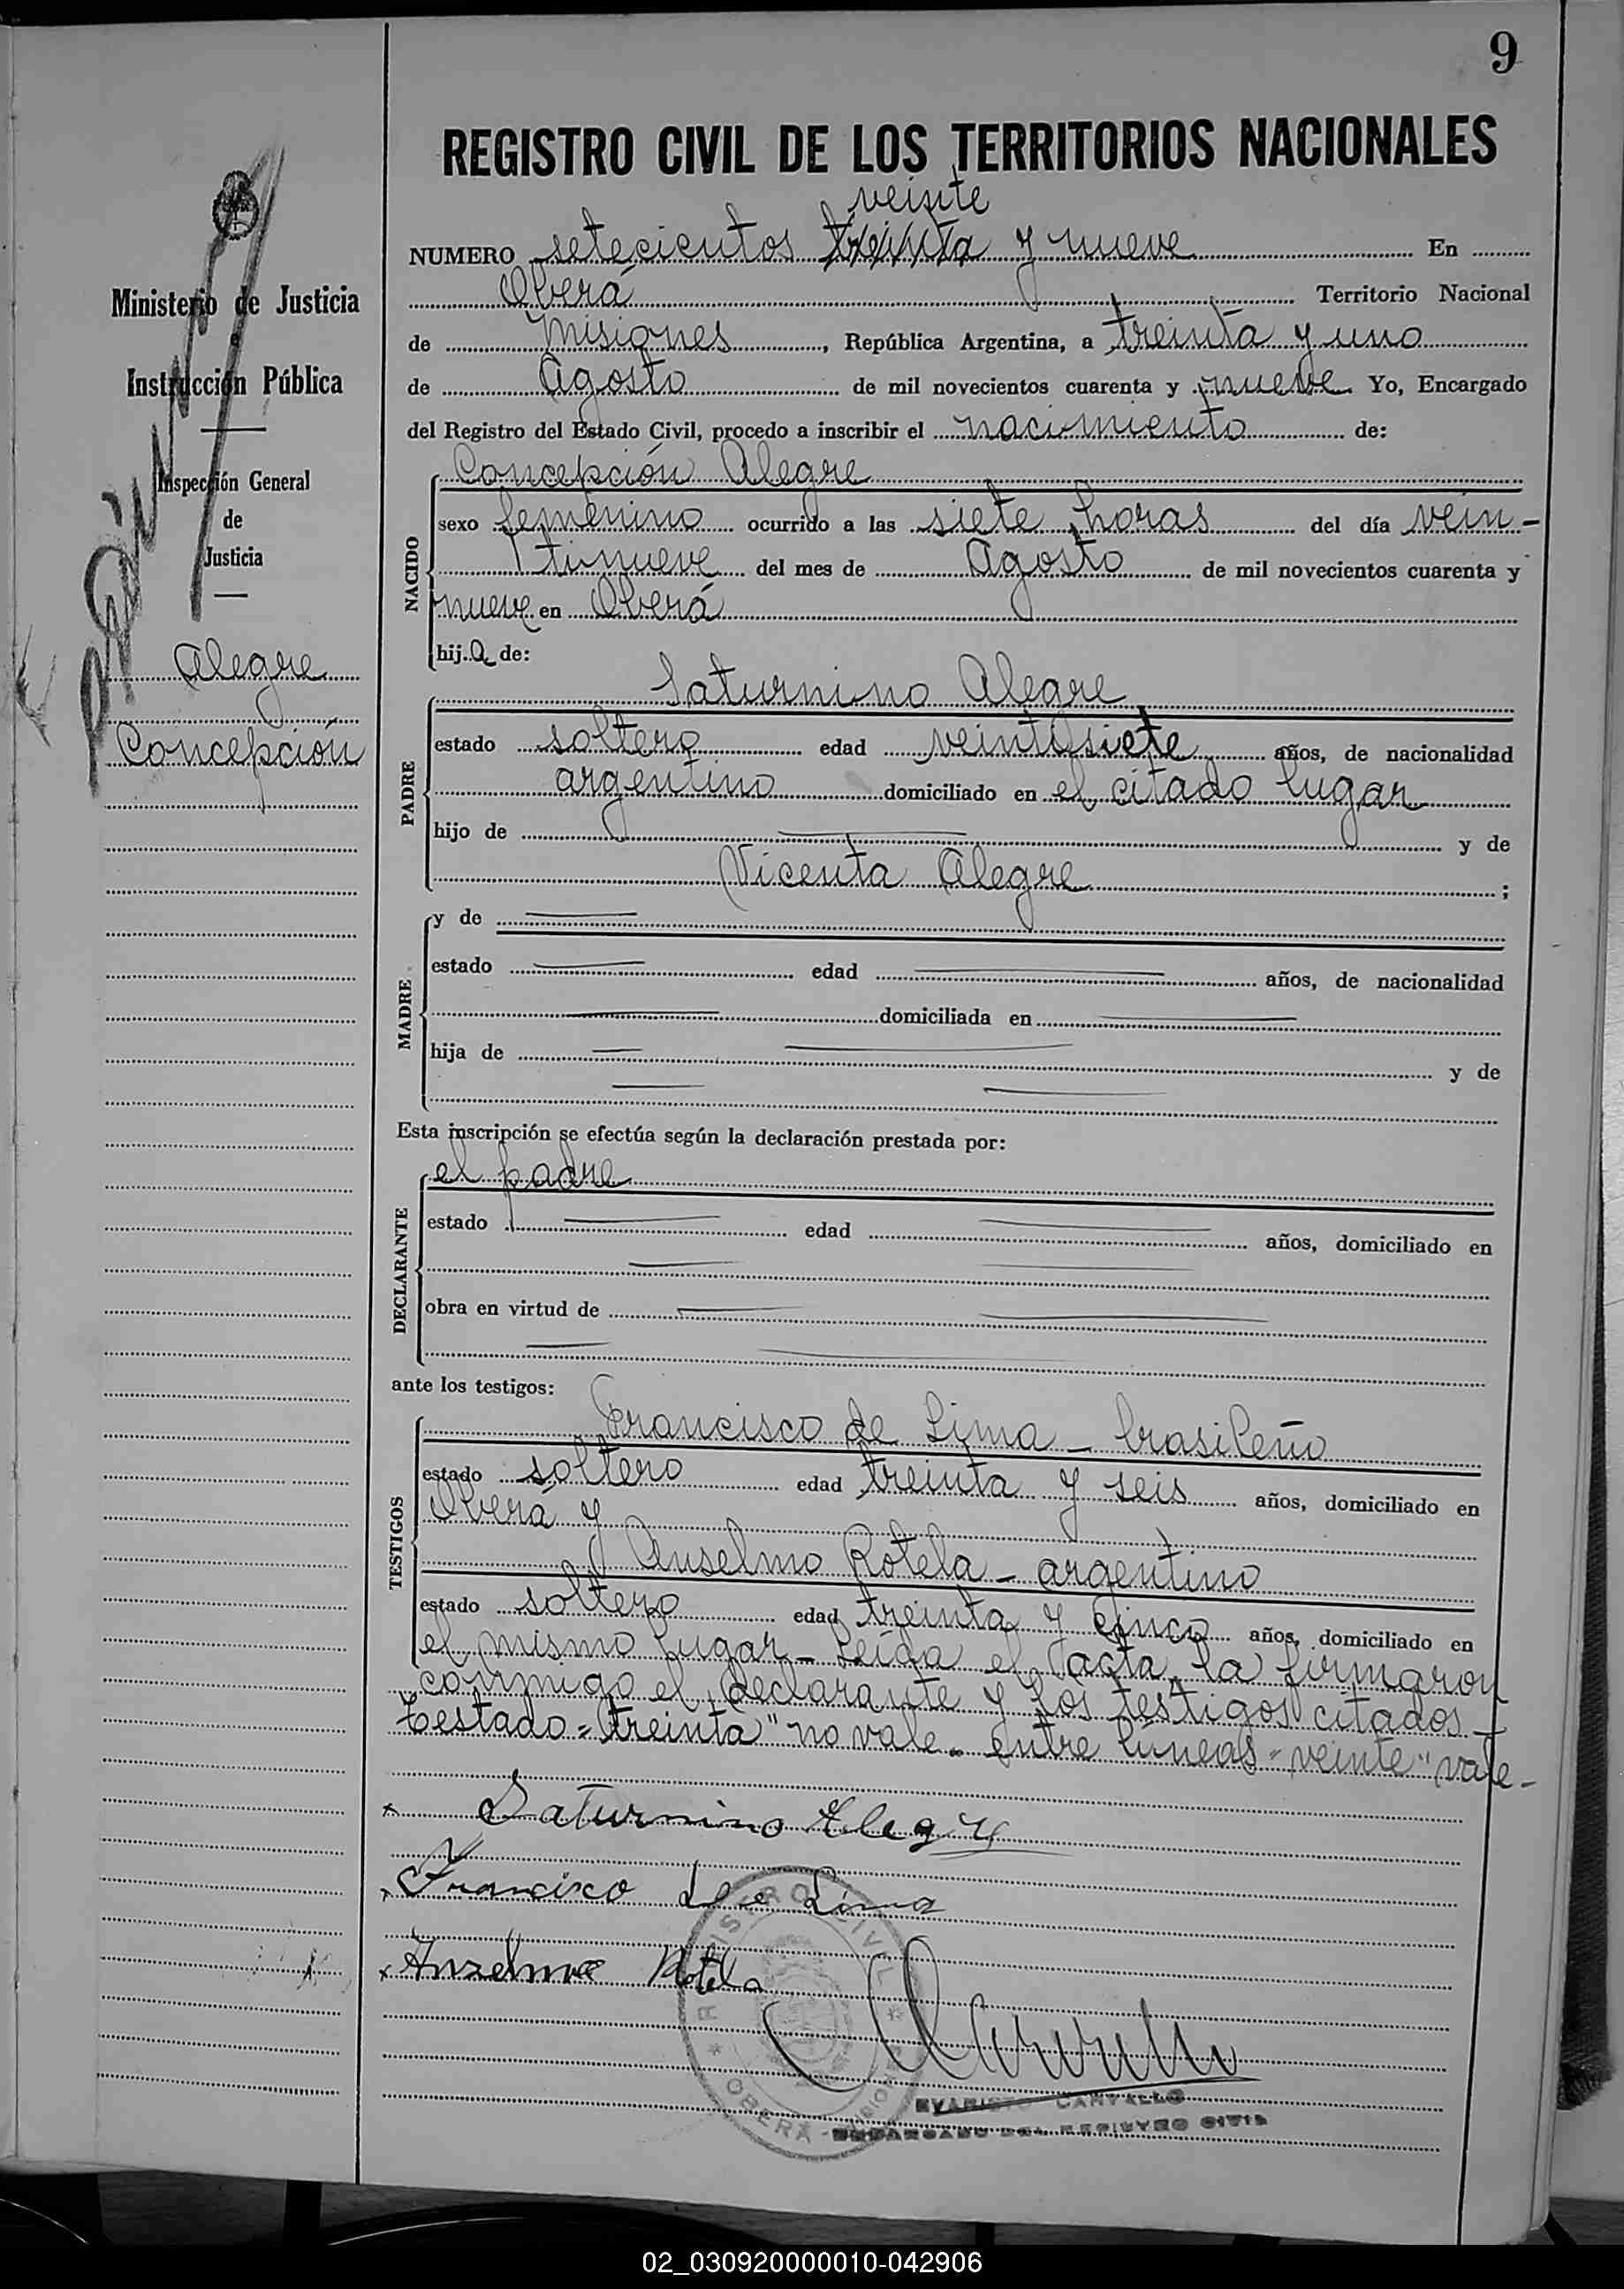 9
REGISTRO CIVIL DE LOS TERRITORIOS NACIONALES
veinte
NUMERO setecientos treinta y nueve En
Oberá Territorio Nacional
de Misiones, República Argentina, a treinta y uno
de Agosto de mil novecientos cuarenta y nueve Yo, Encargado
del Registro del Estado Civil, procedo a inscribir el nacimiento de:
Ministerio de Justicia
Instrucción Pública
Inspección General
de
Justicia
Alegre
Concepción
NACIDO
Concepción Alegre
sexo femenino ocurrido a las siete horas del día vein-
tinueve del mes de Agosto de mil novecientos cuarenta y
nueve en Oberá
hij.a de:
PADRE
Saturnino Alegre
estado soltero edad veintisiete años, de nacionalidad
argentino domiciliado en el citado lugar
hijo de y de
Vicenta Alegre ;
MADRE
y de
estado edad años, de nacionalidad
domiciliada en
hija de y de
Esta inscripción se efectúa según la declaración prestada por:
DECLARANTE
el padre
estado edad años, domiciliado en
obra en virtud de
ante los testigos:
TESTIGOS
Francisco de Lima - brasileño
estado soltero edad treinta y seis años, domiciliado en
Oberá y
Anselmo Rotela - argentino
estado soltero edad treinta y cinco años, domiciliado en
el mismo lugar - Leída el acta, la firmaron
conmigo el declarante y los testigos citados -
Testado = "treinta" no vale. entre líneas "veinte" vale -
Saturnino Alegre
Francisco de Lima
Anzelmo Rotela
REGISTRO CIVIL
OBERÁ - MISIONES
EVARISTO CARVALLO
ENCARGADO DEL REGISTRO CIVIL
02_030920000010-042906